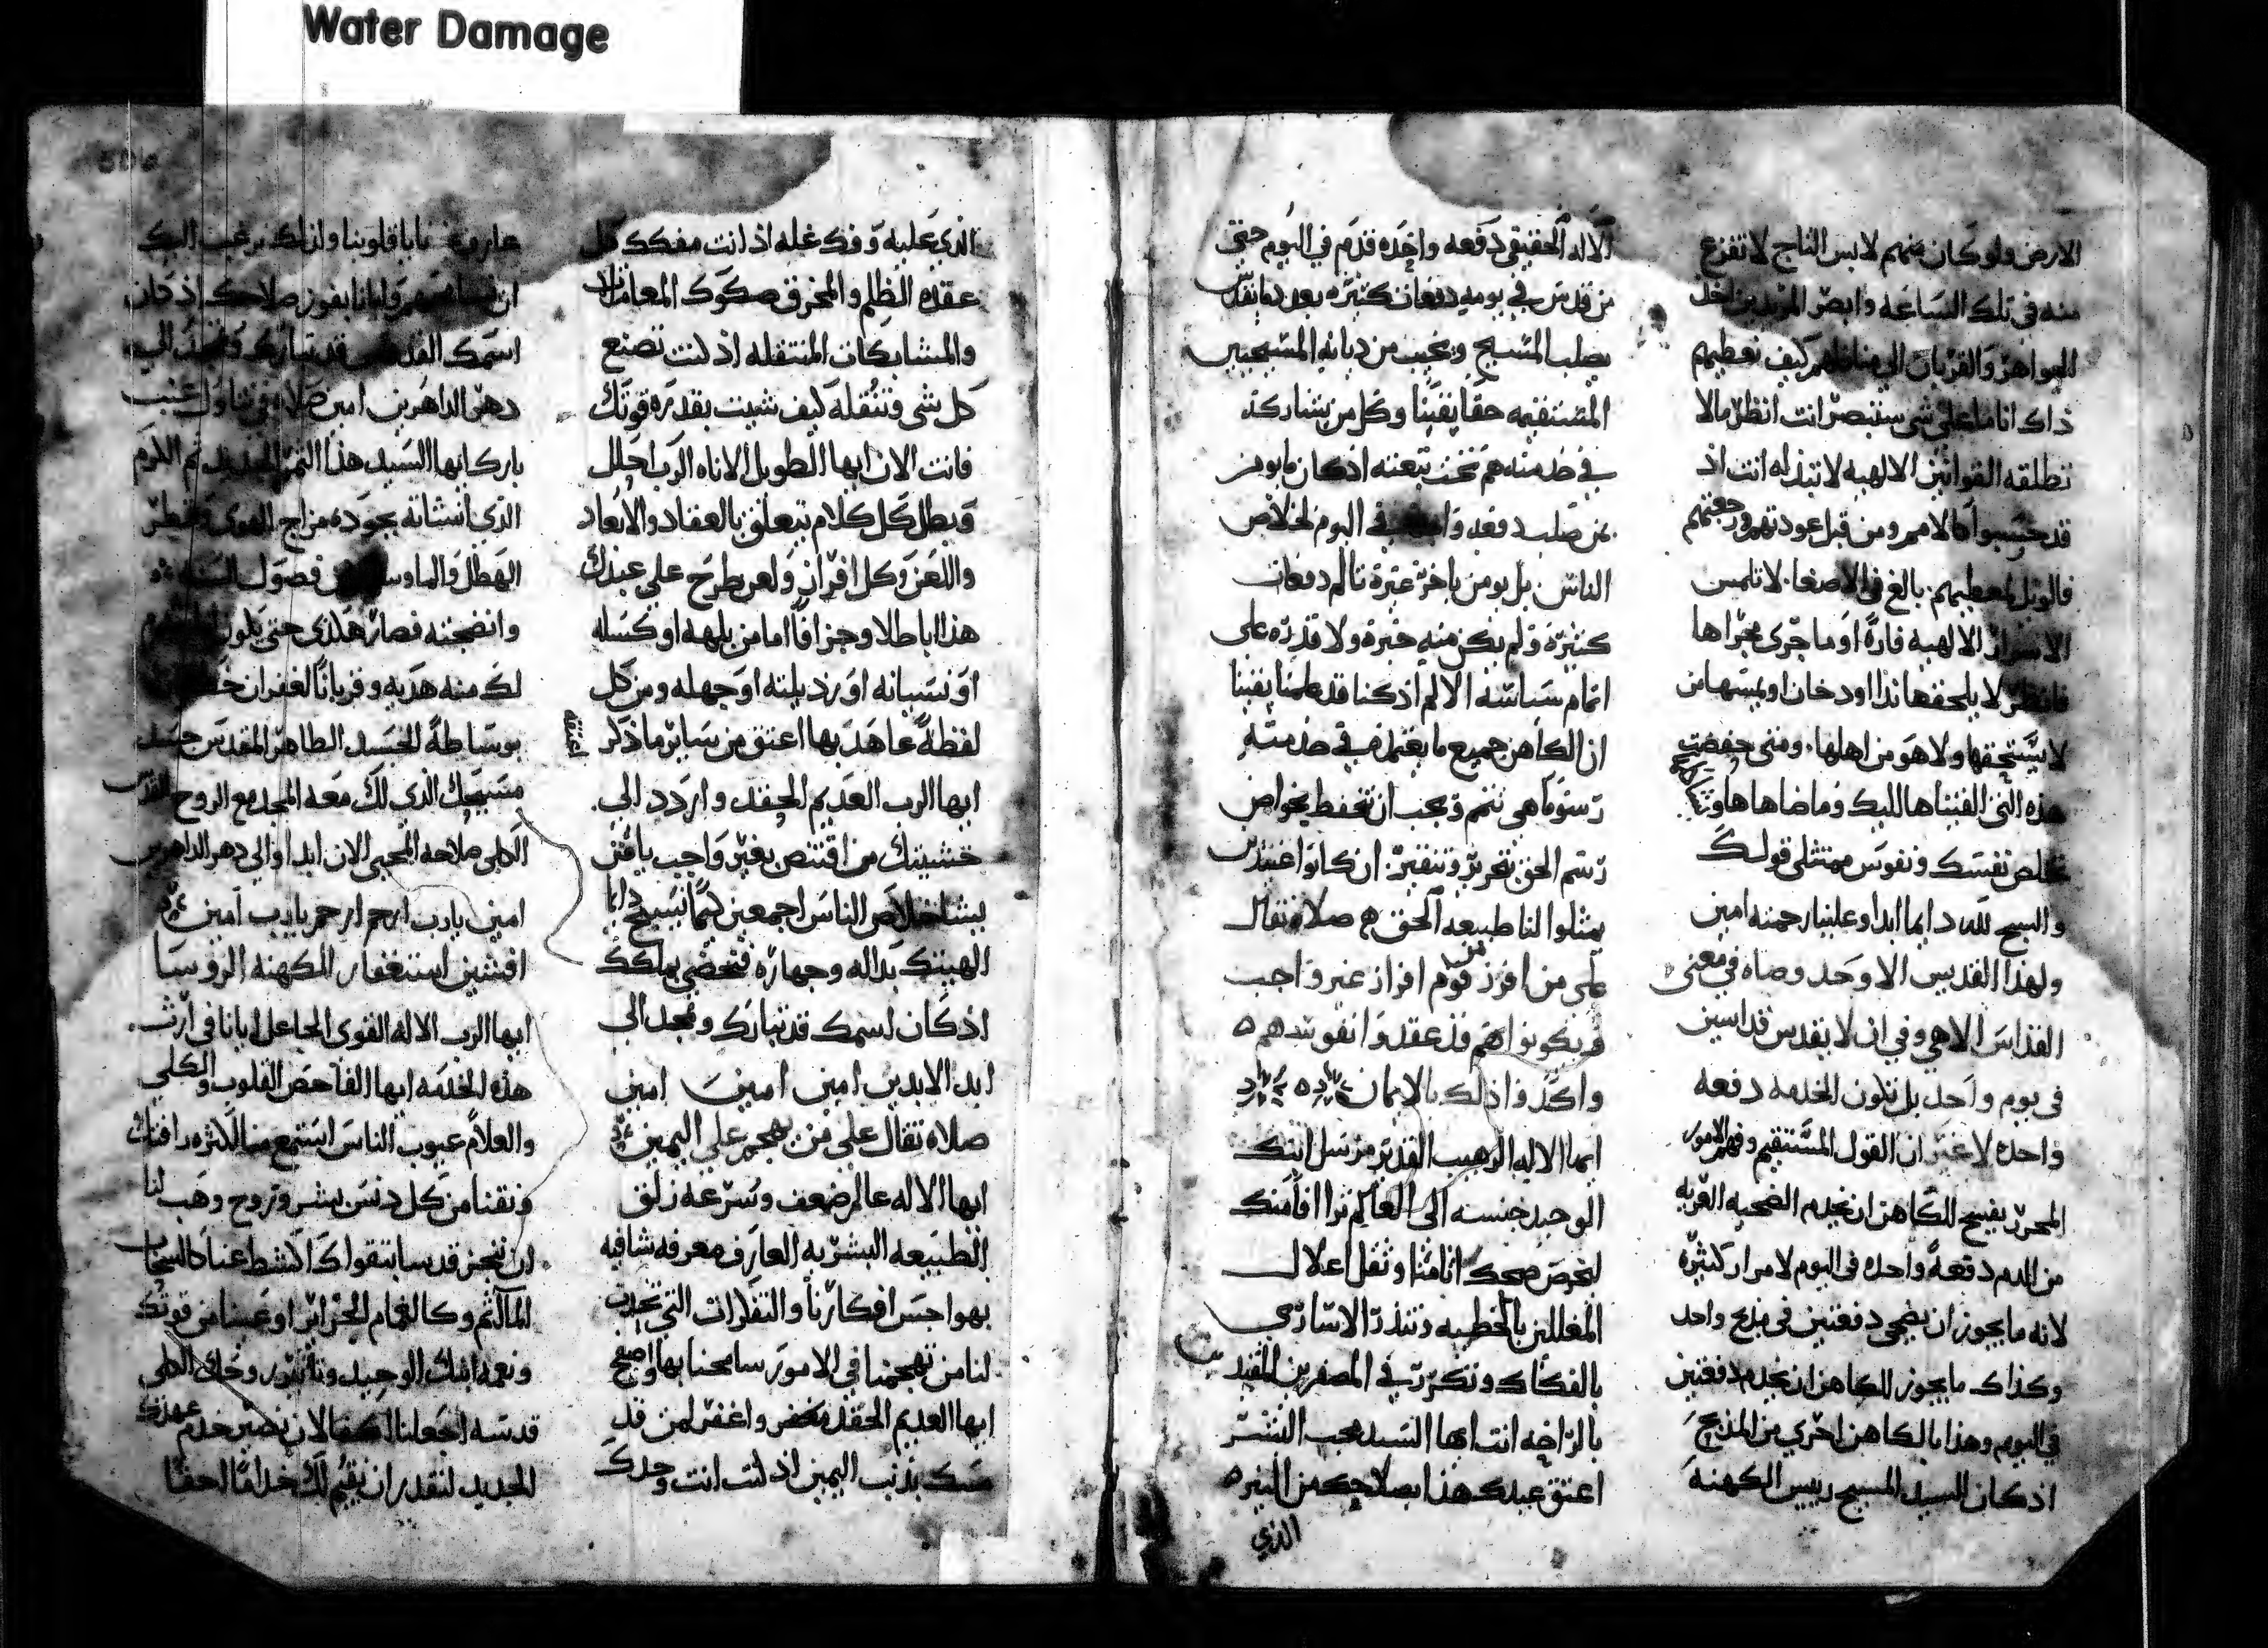 Water Damage
الارض ولو كان منهم لابس التاج لا تفزع
منه في تلك الساعه وابصر المزيدين اخذ
الجواهر والقربان الي منازلهم كيف تعطيهم
ذاك انا ما علي شي ستبصر انت انظر ما لا
تطلقه القوانين الالهيه لا تبذله انت اذ
قد حسبوا كالامم ومن قبل عودتهم ورجعتهم
فالويل لمعطيهم بالغ في الاصغا لا تلمس
الاسرار الالهيه فارة او ما جرى مجراها
فانظر لا يلحقها ندا او دخان او يمسها من
لا يستحقها ولا هو من اهلها ومتى حفضت
هذه التي القيناها اليك وما ضاهاها
تخلص نفسك ونفوس ممتثلي قولك
والسبح لله دايما ابدا وعلينا رحمته امين
ولهذا القديس الاوحد وصاه في معنى
القداس الالاهي وفي ان لا يقدس قداسين
في يوم واحد بل تكون الخدمه دفعه
واحده لا غير ان القول المستقيم وفهم الامور
المحرر يفسح للكاهن ان يخدم الضحيه العريه
من الدم دفعة واحده في اليوم لا مرار كثيره
لانه ما يجوز ان يضحي دفعتين في مذبح واحد
وكذاك ما يجوز للكاهن ان يخدم دفعتين
في اليوم وهذا بالكاهن احري من المذبح
اذ كان السيد المسيح رييس الكهنه
الاله الحقيقي دفعه واحده قدم في اليوم حتى
من قدس في يومه دفعات كثيره يعد دما يقدس
يصلب المسيح ويخيب من ديانه المسيحيين
المستقيمه حقا يقينا وكل من يشاركه
في خدمته هم تحت تبعته اذ كان ما يومن
بمن صلب دفعه في اليوم لخلاص
الناس بل يومن باخر غيره تالم دفعات
كثيره ولم يكن منه خبرة ولا قدره على
اتمام سياسه الالم اذ كنا قد علمنا يقينا
ان الكاهن جميع ما يعتمله في خدمته
رسوما هي تتم ويجب ان تحفط بخواص
رسم الحق بتحريز وتنقير ان كانوا
يمثلوا لنا طبيعه الحق صلاة تقال
على من افرز من قوم افراز غير واجب
ويكونوا هم قد عقدوا نفوسهم
واكدوا ذلك بالايمان
ايها الاله الرهيب القدير مرسل ابنك
الوحيد جنسه الى العالم
ليخرص صحك اثامنا وثقل اغلال
المغللين بالخطيه وتنذر الاسارى
بالفكاك وتكرز في المصفرين المقيدين
بالراحه انت ايها السيد محب البشر
اعتق عبدك هذا بصلاحك من النيره
الذي
الذي عليه وفك غله اذ انت مفكك كل
عقده الظلم والمخرق صكوك المعاملات
والمشابكات المنتقله اذ انت تصنع
كل شي وتنقله كيف شيت بقدره قوتك
فانت الان ايها الطويل الاناه الرب احلل
وبطل كل كلام يتعلق بالعقاد والابعاد
واللعن وكل افراز ولعن طرح علي عبدك
هذا باطلا وجزافا اما من بلهه او كسله
او نسيانه او رذيلته او جهله ومن كل
لفظة عاهد بها اعتق من ساير ما ذكر
اعتقه
ايها الرب العديم الحقد واردد الي
خشيتك من اقتنص بغير واجب يا من
يشا خلاص الناس اجمعين كما نسبح دايما
الهيتك بداله وجهاره فتحضي بملكك
اذ كان اسمك قد تبارك وتمجد الي
ابد الابدين امين امين امين
صلاه تقال علي من يهجم علي اليمين
ايها الاله عالم ضعف وسرعه زلق
الطبيعه البشريه العارف معرفه شافيه
بهواجس افكارنا والتفكرات التي تحدث
لنا من تهجمنا في الامور سامحنا بها واصفح
ايها العديم الحقد واغفر لمن قد
مسك بذنب اليمين اذ انت انت وحدك
عارف خبايا قلوبنا واذ لك نرغب اليك
ان وايانا بفوز صلاحك اذ كان
اسمك القدوس قد تبارك وتمجد الي
دهر الداهرين امين صلاة في تناول عنب
بارك ايها السيد هذا الثمر الجديد ثمر الكرم
الذي انشاته بجوده مزاج الهوى وقطر
الهطل والما فصول السنه
وانضجته فصار هكذى حتى يكون
لك منه هديه وقربانا لغفران
بوساطة الجسد الطاهر المقدس جسد
مسيحك الذي لك معه المجد مع الروح القدس
الكلي صلاحه المحيي الان ابدا والي دهر الداهرين
امين يارب ارحم ارحم يارب امين
افشين استغفار للكهنه الروسا
ايها الرب الاله القوى الجاعل ايانا في ارث
هذه الخدمه ايها الفاحص القلوب والكلي
والعلام عيوب الناس استمع منا لكثره رافتك
ونقنا من كل دنس بشر وروح وهب لنا
ان ننجز قدسا بتقواك اكشط عنا كالسحاب
المآثم وكالغمام الجراير اوعبنا من قوتك
ونعمه ابنك الوحيد وتاييد روحك الكلي
قدسه اجعلنا اكفا لان نصير خدم عهدك
الجديد لنقدر ان نقيم لك خداما حقا